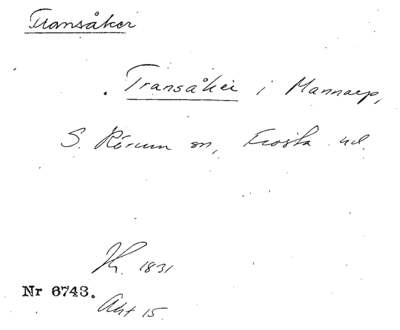 Transåker
Transåker i Mannarp,
S. Rörum sn, Frosta hd.
1831
Nr 6743.
Akt 15.